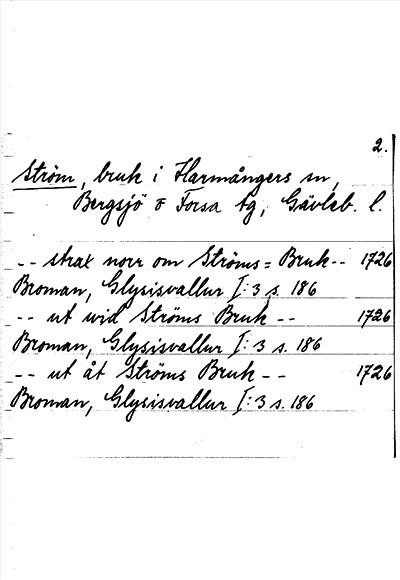 2.
Ström, bruk i Harmångers sn,
Bergsjö o Forsa tg, Gävleb. l.
-- strax norr om Ströms= Bruk -- 1726
Broman, Glysisvallur I:3 s. 186
-- ut wid Ströms Bruk -- 1726
Broman, Glysisvallur I:3 s. 186
-- ut åt Ströms Bruk -- 1726
Broman, Glysisvallur I:3 s. 186